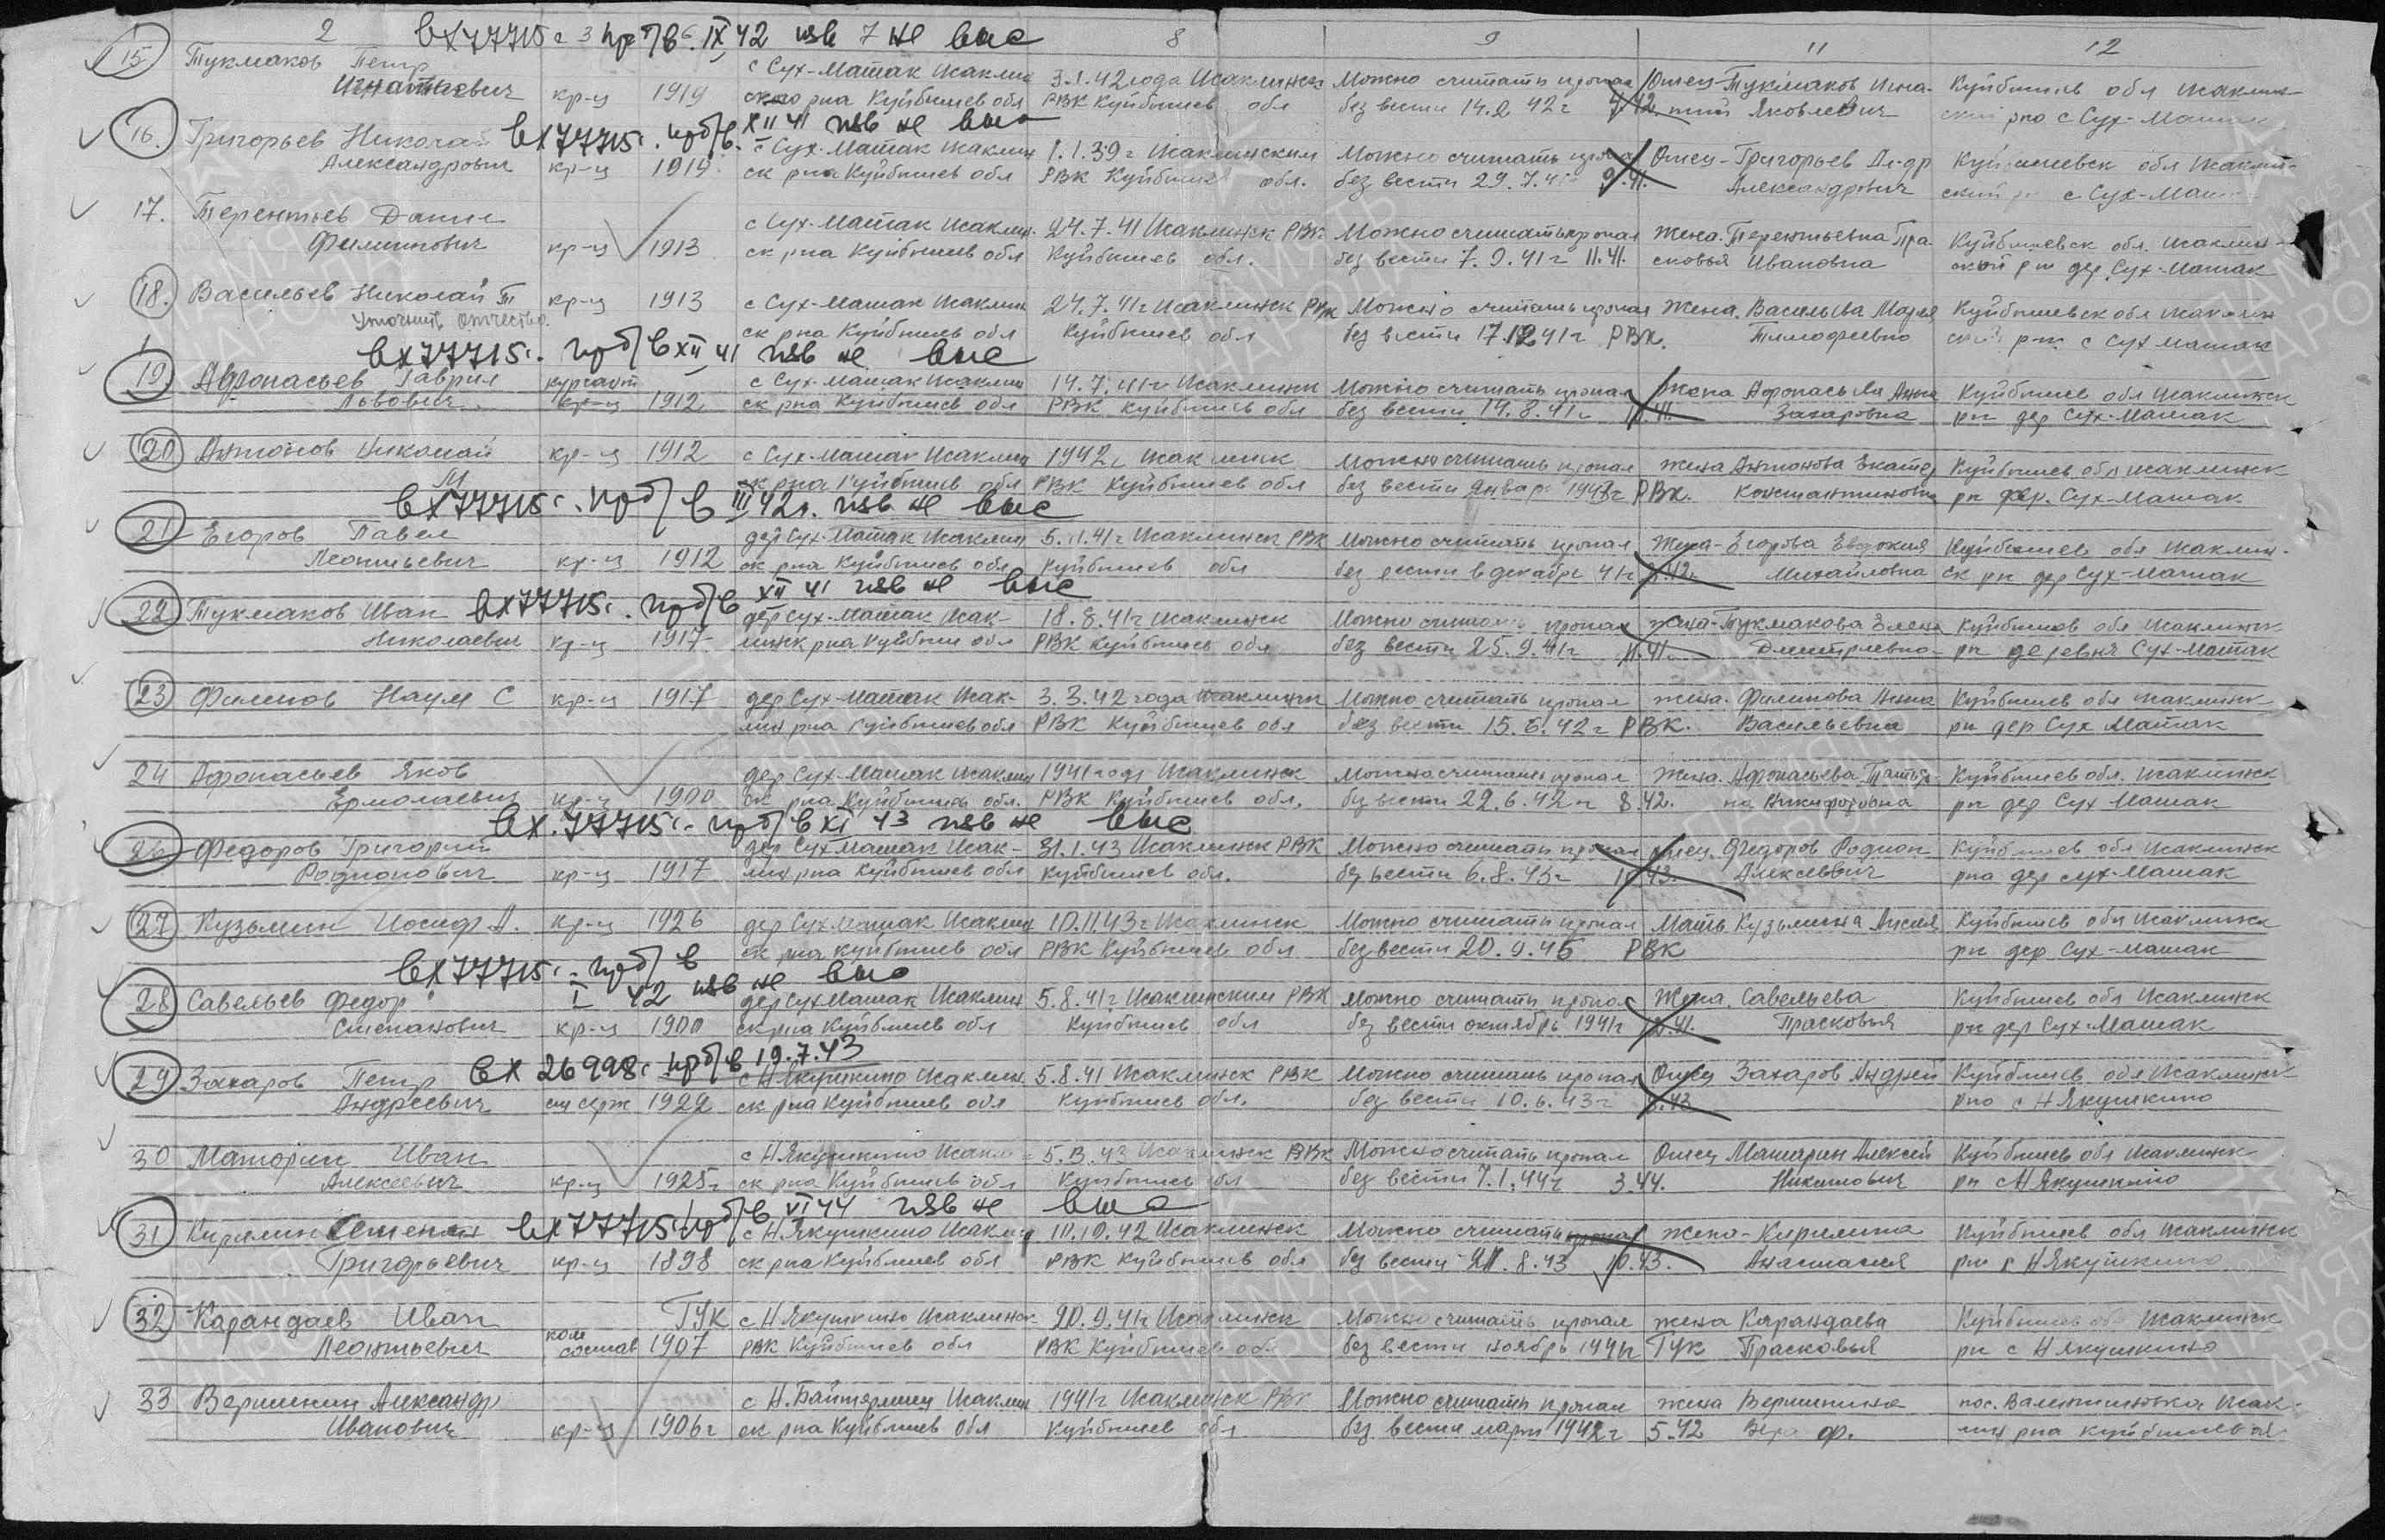 2 8 9 11 12
вх 77715с з пр б/в IX 42 изв 7 не выс
15 Тукмаков Петр с Сух-Матак Исаклин 3.1.42 года Исаклинск Можно считать пропал Отец-Тукмаков Игна- Куйбышев обл Исаклин-
Игнатьевич кр-ц 1919 ского р-на Куйбышев обл РВК Куйбышев обл без вести 14.2 42 г 4.42. тий Яковлевич ский р-но с Сух-Матак
вх 77715с. пр б/в. XII 41 изв не выс
16. Григорьев Николай с Сух-Матак Исаклин 1.1.39 г Исаклинским Можно считать пропал Отец-Григорьев Ал-др Куйбышевск обл Исаклин-
Александрович кр-ц 1919 ск р-на Куйбышев обл РВК Куйбышев обл. без вести 29.7.41 9.41. Александрович ский р-н с Сух-Матак
17. Терентьев Данил с Сух-Матак Исаклин- 24.7.41 Исаклинск РВК Можно считать пропал Жена. Терентьевна Пра- Куйбышевск обл. Исаклин-
Филиппович кр-ц 1913 ск р-на Куйбышев обл Куйбышев обл. без вести 7.9.41 г 11.41. сковья Ивановна ский р-н дер. Сух-Матак
18. Васильев Николай Т кр-ц 1913 с Сух-Матак Исаклин 24.7.41 г Исаклинск РВК Можно считать пропал Жена. Васильева Мария Куйбышевск обл Исаклин
Уточнить отчество. ск р-на Куйбышев обл Куйбышев обл без вести 17.12 41 г РВК. Тимофеевна ский р-н с Сух Матак
вх 77715с. пр б/в XII 41 изв не выс
19. Афонасьев Гаврил курсант с Сух-Матак Исаклин 14.7.41 г Исаклинск Можно считать пропал Жена Афонасьева Анна Куйбышев обл Исаклинск
Львович кр-ц 1912 ск р-на Куйбышев обл РВК Куйбышев обл без вести 14.8.41 г 10.41. Захаровна р-н дер Сух-Матак
20 Антонов Николай кр-ц 1912 с Сух-Матак Исаклин 1942 г Исаклинск Можно считать пропал Жена Антонова Екатер Куйбышев обл Исаклинск
М ск р-на Куйбышев обл РВК Куйбышев обл без вести январ 1943 г РВК. Константиновна р-н дер. Сух-Матак
вх 77715с. пр б/в III 42 г. изв не выс
21 Егоров Павел дер Сух-Матак Исаклин 5.11.41 г Исаклинск РВК Можно считать пропал Жена-Егорова Евдокия Куйбышев обл Исаклин-
Леонтьевич кр-ц 1912 ск р-на Куйбышев обл Куйбышев обл без вести в декабре 41 г 2.42. Михайловна ск р-н дер Сух-Матак
22 Тукмаков Иван вх 77715с. пр б/в XII 41 изв не выс дер Сух-Матак Исак- 18.8.41 г Исаклинск Можно считать пропал Жена-Тукмакова Елена Куйбышев обл Исаклинск
Николаевич кр-ц 1917 линск р-на Куйбыш обл РВК Куйбышев обл без вести 25.9.41 г 11.41. Дмитриевна р-н деревня Сух-Матак
23 Филипов Наум С кр-ц 1917 дер Сух-Матак Исак- 3.3.42 года Исаклинск Можно считать пропал жена. Филипова Анна Куйбышев обл Исаклинск
лин р-на Куйбышев обл РВК Куйбышев обл без вести 15.6.42 г РВК. Васильевна р-н дер Сух Матак
24 Афонасьев Яков дер Сух-Матак Исаклин 1941 года Исаклинск Можно считать пропал Жена. Афонасьева Татья- Куйбышев обл. Исаклинск
Ермолаевич кр-ц 1900 ск р-на Куйбышев обл. РВК Куйбышев обл. без вести 22.6.42 г 8.42. на Никифоровна р-н дер Сух Матак
вх. 77715с. пр б/в XI 43 изв не выс
26 Федоров Григорий дер Сух Матак Исак- 31.1.43 Исаклинск РВК Можно считать пропал отец. Федоров Родион Куйбышев обл Исаклинск
Родионович кр-ц 1917 лин р-на Куйбышев обл Куйбышев обл. без вести 6.8.43 г 10.43. Алексеевич р-на дер Сух-Матак
27 Кузьмин Иосиф А. кр-ц 1926 дер Сух-Матак Исаклин 10.11.43 г Исаклинск Можно считать пропал Мать Кузьмина Анисия Куйбышев обл Исаклинск
ск р-на Куйбышев обл РВК Куйбышев обл без вести 20.9.45 РВК р-н дер Сух-Матак
вх 77715с. пр б/в I 42 изв не выс
28 Савельев Федор дер Сух Матак Исаклин 5.8.41 г Исаклинским РВК Можно считать пропал Жена. Савельева Куйбышев обл Исаклинск
Степанович кр-ц 1900 ск р-на Куйбышев обл Куйбышев обл без вести октябрь 1941 г 12.41. Прасковья р-н дер Сух-Матак
вх 26998с пр б/в 19.7.43
29 Захаров Петр с Н Якушкино Исаклин. 5.8.41 Исаклинск РВК Можно считать пропал Отец Захаров Андрей Куйбышев обл Исаклинск
Андреевич ст серж 1922 ск р-на Куйбышев обл Куйбышев обл. без вести 10.6.43 г 8.43 р-но с Н Якушкино
30 Маторин Иван с Н Якушкино Исакл 5.3.43 Исаклинск РВК Можно считать пропал Отец Маторин Алексей Куйбышев обл Исаклинск
Алексеевич кр-ц 1925 г ск р-на Куйбышев обл Куйбышев обл без вести 7.1.44 г 3.44. Никитович р-н с Н Якушкино
31 Кирилин Семен вх 77715с. пр б/в VI 44 изв не выс с Н Якушкино Исаклин 10.10.42 Исаклинск Можно считать пропал жена-Кирилина Куйбышев обл Исаклинск
Григорьевич кр-ц 1898 ск р-на Куйбышев обл РВК Куйбышев обл без вести 20.8.43 10.43. Анастасия р-н с Н Якушкино
32 Карандаев Иван ГУК с Н Якушкино Исаклинск 20.9.41 г Исаклинск Можно считать пропал жена Карандаева Куйбышев обл Исаклинск
Леонтьевич ком состав 1907 РВК Куйбышев обл РВК Куйбышев обл без вести ноябрь 1941 г ГУК Прасковья р-н с Н Якушкино
33 Вершинин Александр с Н. Байтермиш Исаклин 1941 г Исаклинск РВК Можно считать пропал жена Вершинина пос. Валентиновка Исак-
Иванович кр-ц 1906 г ск р-на Куйбышев обл Куйбышев обл без вести март 1942 г 5.42 Вера Ф. лин р-на Куйбышев обл